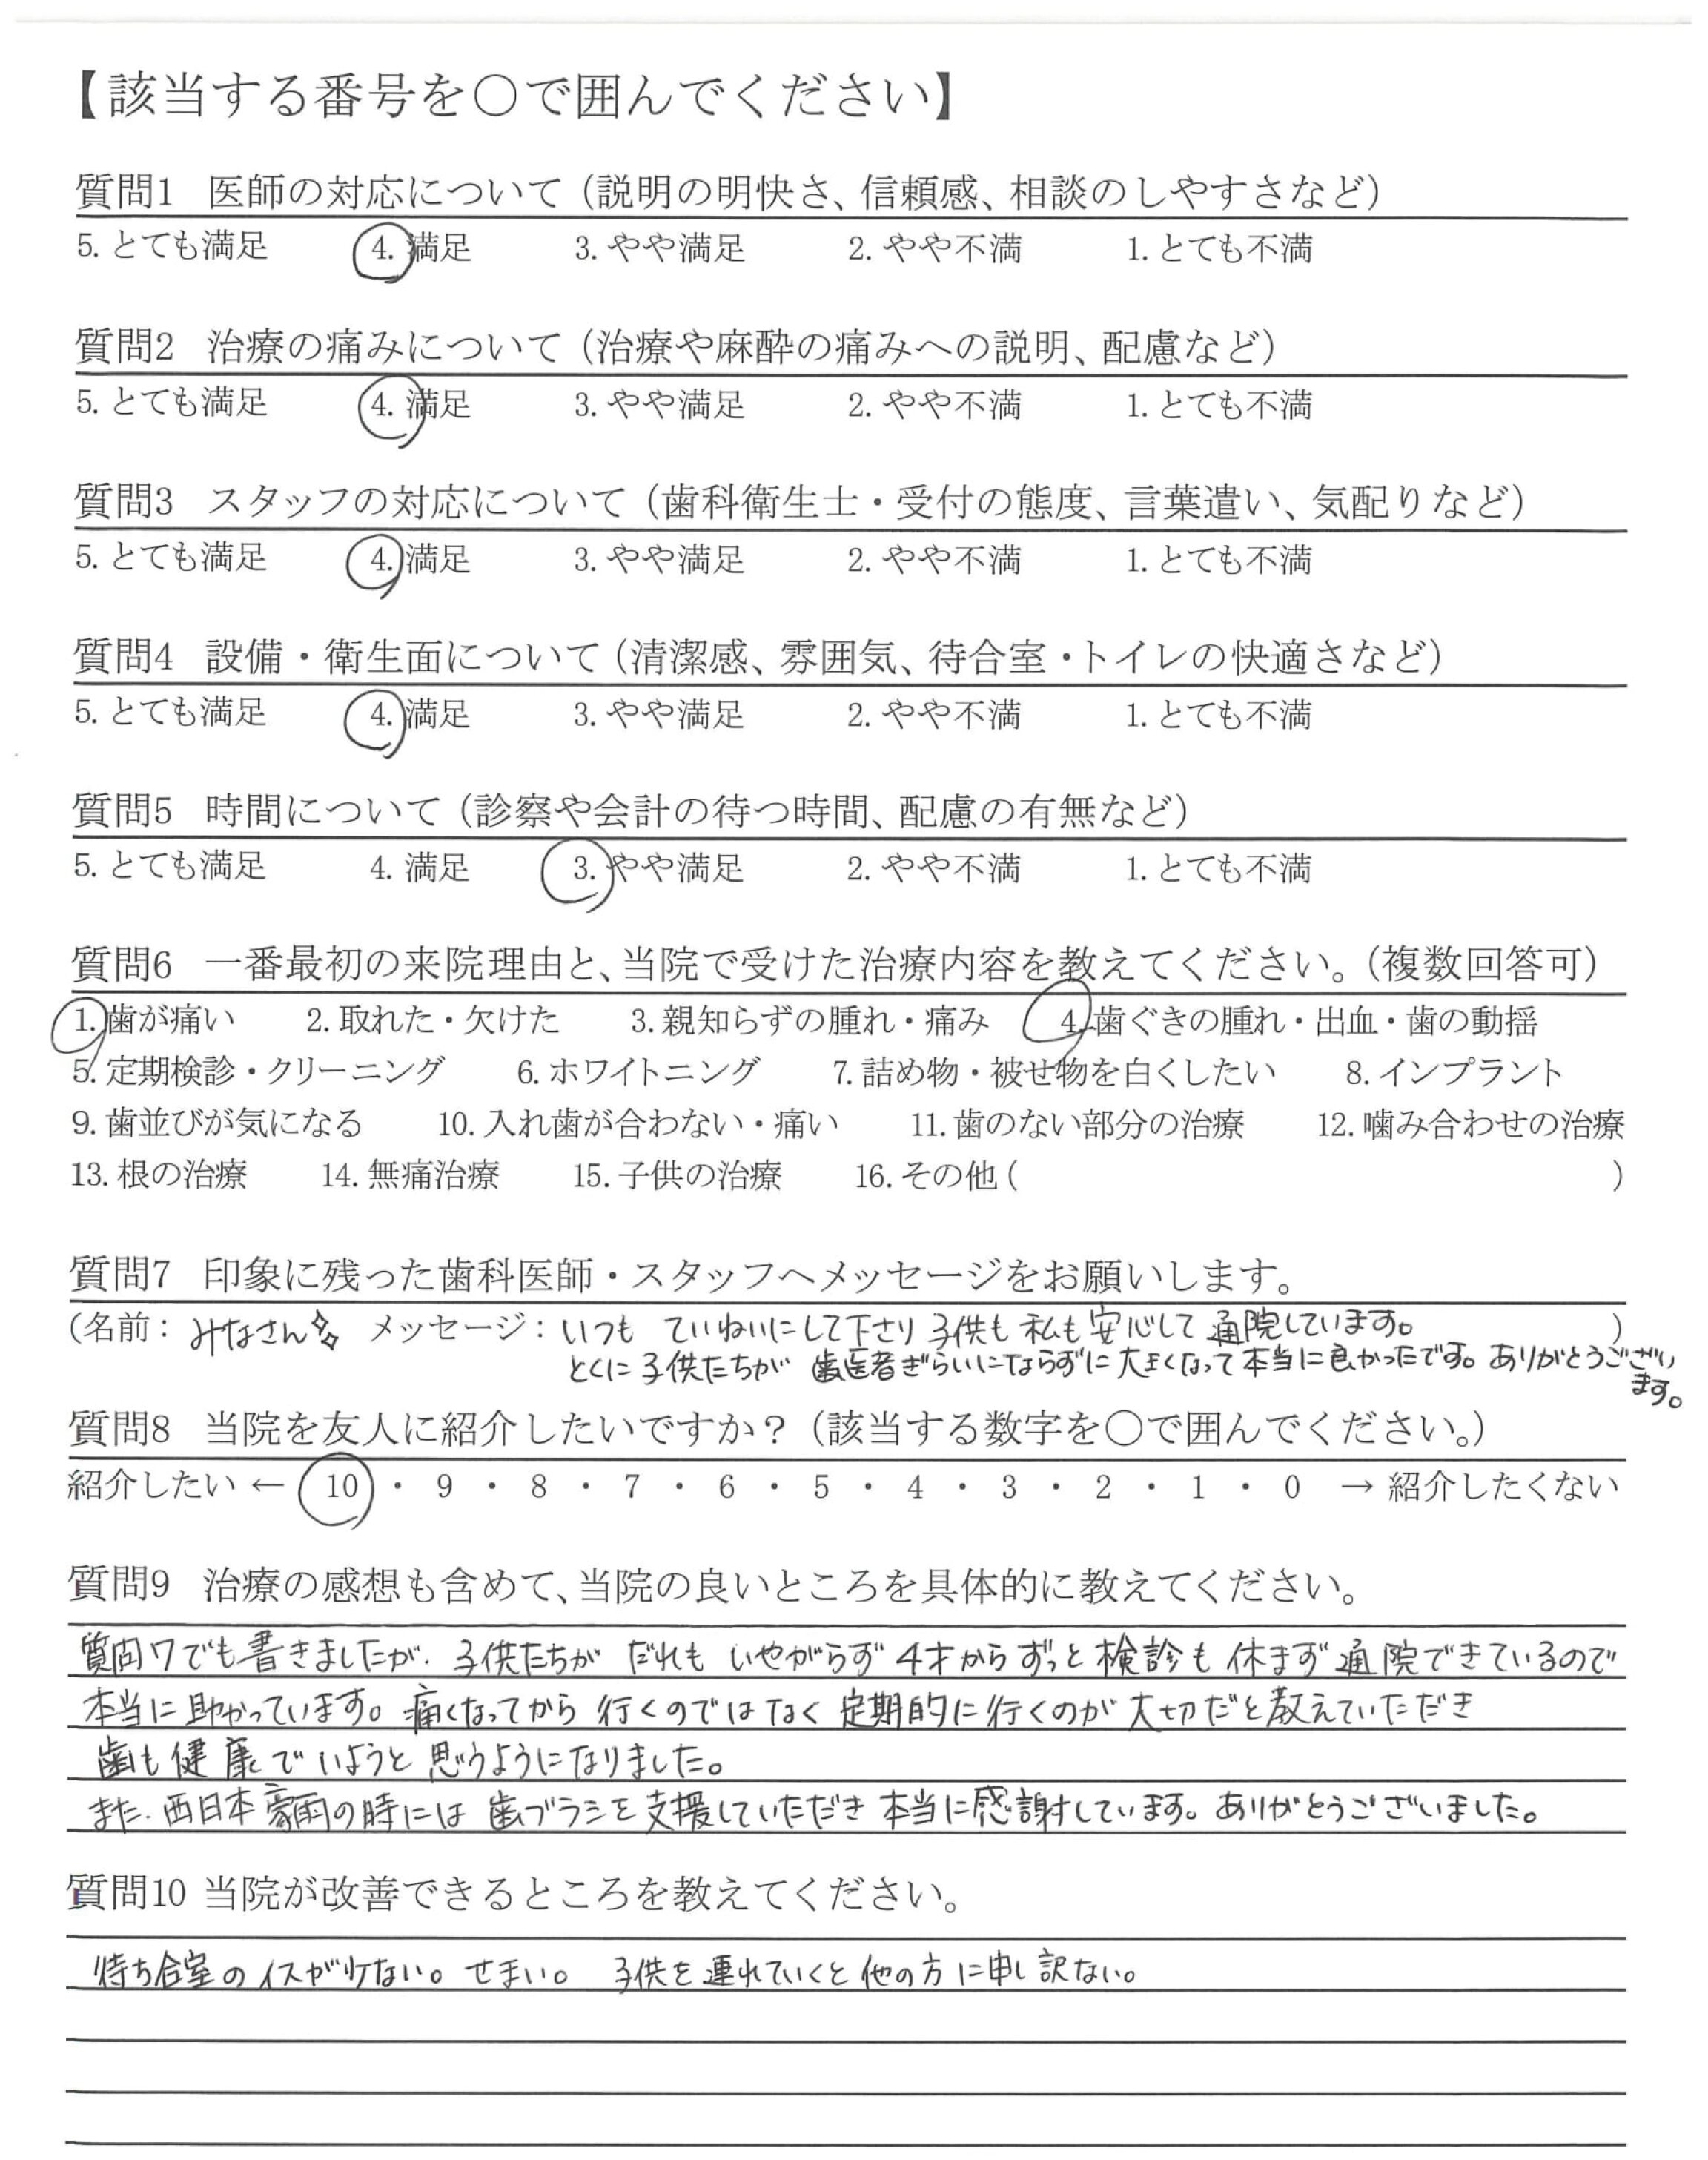 【該当する番号を○で囲んでください】
質問1 医師の対応について（説明の明快さ、信頼感、相談のしやすさなど）
5. とても満足 4. 満足 3. やや満足 2. やや不満 1. とても不満
質問2 治療の痛みについて（治療や麻酔の痛みへの説明、配慮など）
5. とても満足 4. 満足 3. やや満足 2. やや不満 1. とても不満
質問3 スタッフの対応について（歯科衛生士・受付の態度、言葉遣い、気配りなど）
5. とても満足 4. 満足 3. やや満足 2. やや不満 1. とても不満
質問4 設備・衛生面について（清潔感、雰囲気、待合室・トイレの快適さなど）
5. とても満足 4. 満足 3. やや満足 2. やや不満 1. とても不満
質問5 時間について（診察や会計の待つ時間、配慮の有無など）
5. とても満足 4. 満足 3. やや満足 2. やや不満 1. とても不満
質問6 一番最初の来院理由と、当院で受けた治療内容を教えてください。（複数回答可）
1. 歯が痛い 2. 取れた・欠けた 3. 親知らずの腫れ・痛み 4. 歯ぐきの腫れ・出血・歯の動揺
5. 定期検診・クリーニング 6. ホワイトニング 7. 詰め物・被せ物を白くしたい 8. インプラント
9. 歯並びが気になる 10. 入れ歯が合わない・痛い 11. 歯のない部分の治療 12. 噛み合わせの治療
13. 根の治療 14. 無痛治療 15. 子供の治療 16. その他（ ）
質問7 印象に残った歯科医師・スタッフへメッセージをお願いします。
（名前：みなさん メッセージ：いつも ていねいにして下さり 子供も 私も 安心して 通院しています。）
とくに 子供たちが 歯医者ぎらいにならずに 大きくなって 本当に良かったです。ありがとうござい
ます。
質問8 当院を友人に紹介したいですか？（該当する数字を○で囲んでください。）
紹介したい ← 10 ・ 9 ・ 8 ・ 7 ・ 6 ・ 5 ・ 4 ・ 3 ・ 2 ・ 1 ・ 0 → 紹介したくない
質問9 治療の感想も含めて、当院の良いところを具体的に教えてください。
質向7でも書きましたが、子供たちが だれも いやがらず 4才から ずっと 検診も 休まず 通院できているので
本当に 助かっています。痛くなってから 行くのではなく 定期的に行くのが 大切だと教えていただき
歯も健康でいようと 思うようになりました。
また、西日本豪雨の時には 歯ブラシを支援していただき 本当に感謝しています。ありがとうございました。
質問10 当院が改善できるところを教えてください。
待ち合室のイスが少ない。せまい。 子供を連れていくと他の方に申し訳ない。